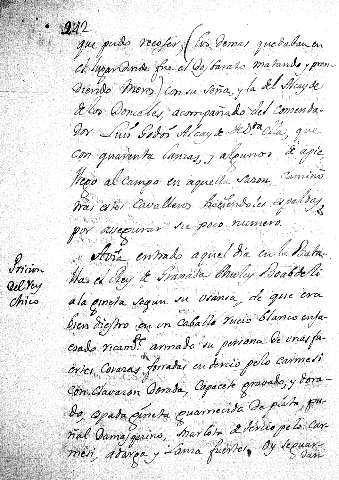 242
que pudo recoser, (los demas quedaban en
el lugar donde fue el desbarato matando y pren
diendo Moros) con su Seña, y la del Alcayde
de los Donceles, acompañado del comenda-
dor Luis Godoy Alcayde de
con quarenta lanzas, y algunos de apie
llego al campo en aquella sazon, camino
tras estos Cavalleros haziendoles espaldas
por asegurar su poco numero.
Avia entrado aquel dia en la Bata
Prision
del Rey
chico
lla el Rey de Granada Muley Boabdeli
a la gineta segun su usanza, de que era
bien diestro en un caballo rucio blanco enja
esado ricamte. armado su persona de unas fu
ertes corazas forradas en tercio pelo carmesi
con clavazon dorada, capacete gravado, y dora-
do, espada gineta guarnecida de plata, pu
ñal Damasquino, Marlota de tercio pelo car
mesi, adarga y lanza fuertes. Oy se guar
dan